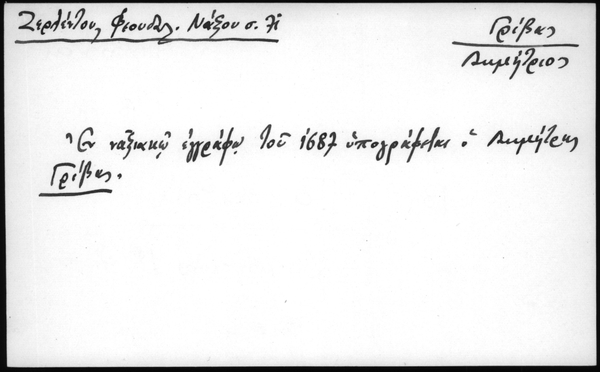 Ζερλέντου, Φεουδαλ. Νάξου σ. 71
Γρίβας
Δημήτριος
Ἐν ναξιακῷ ἐγγράφῳ τοῦ 1687 ὑπογράφεται ὁ Δημήτρης
Γρίβας.